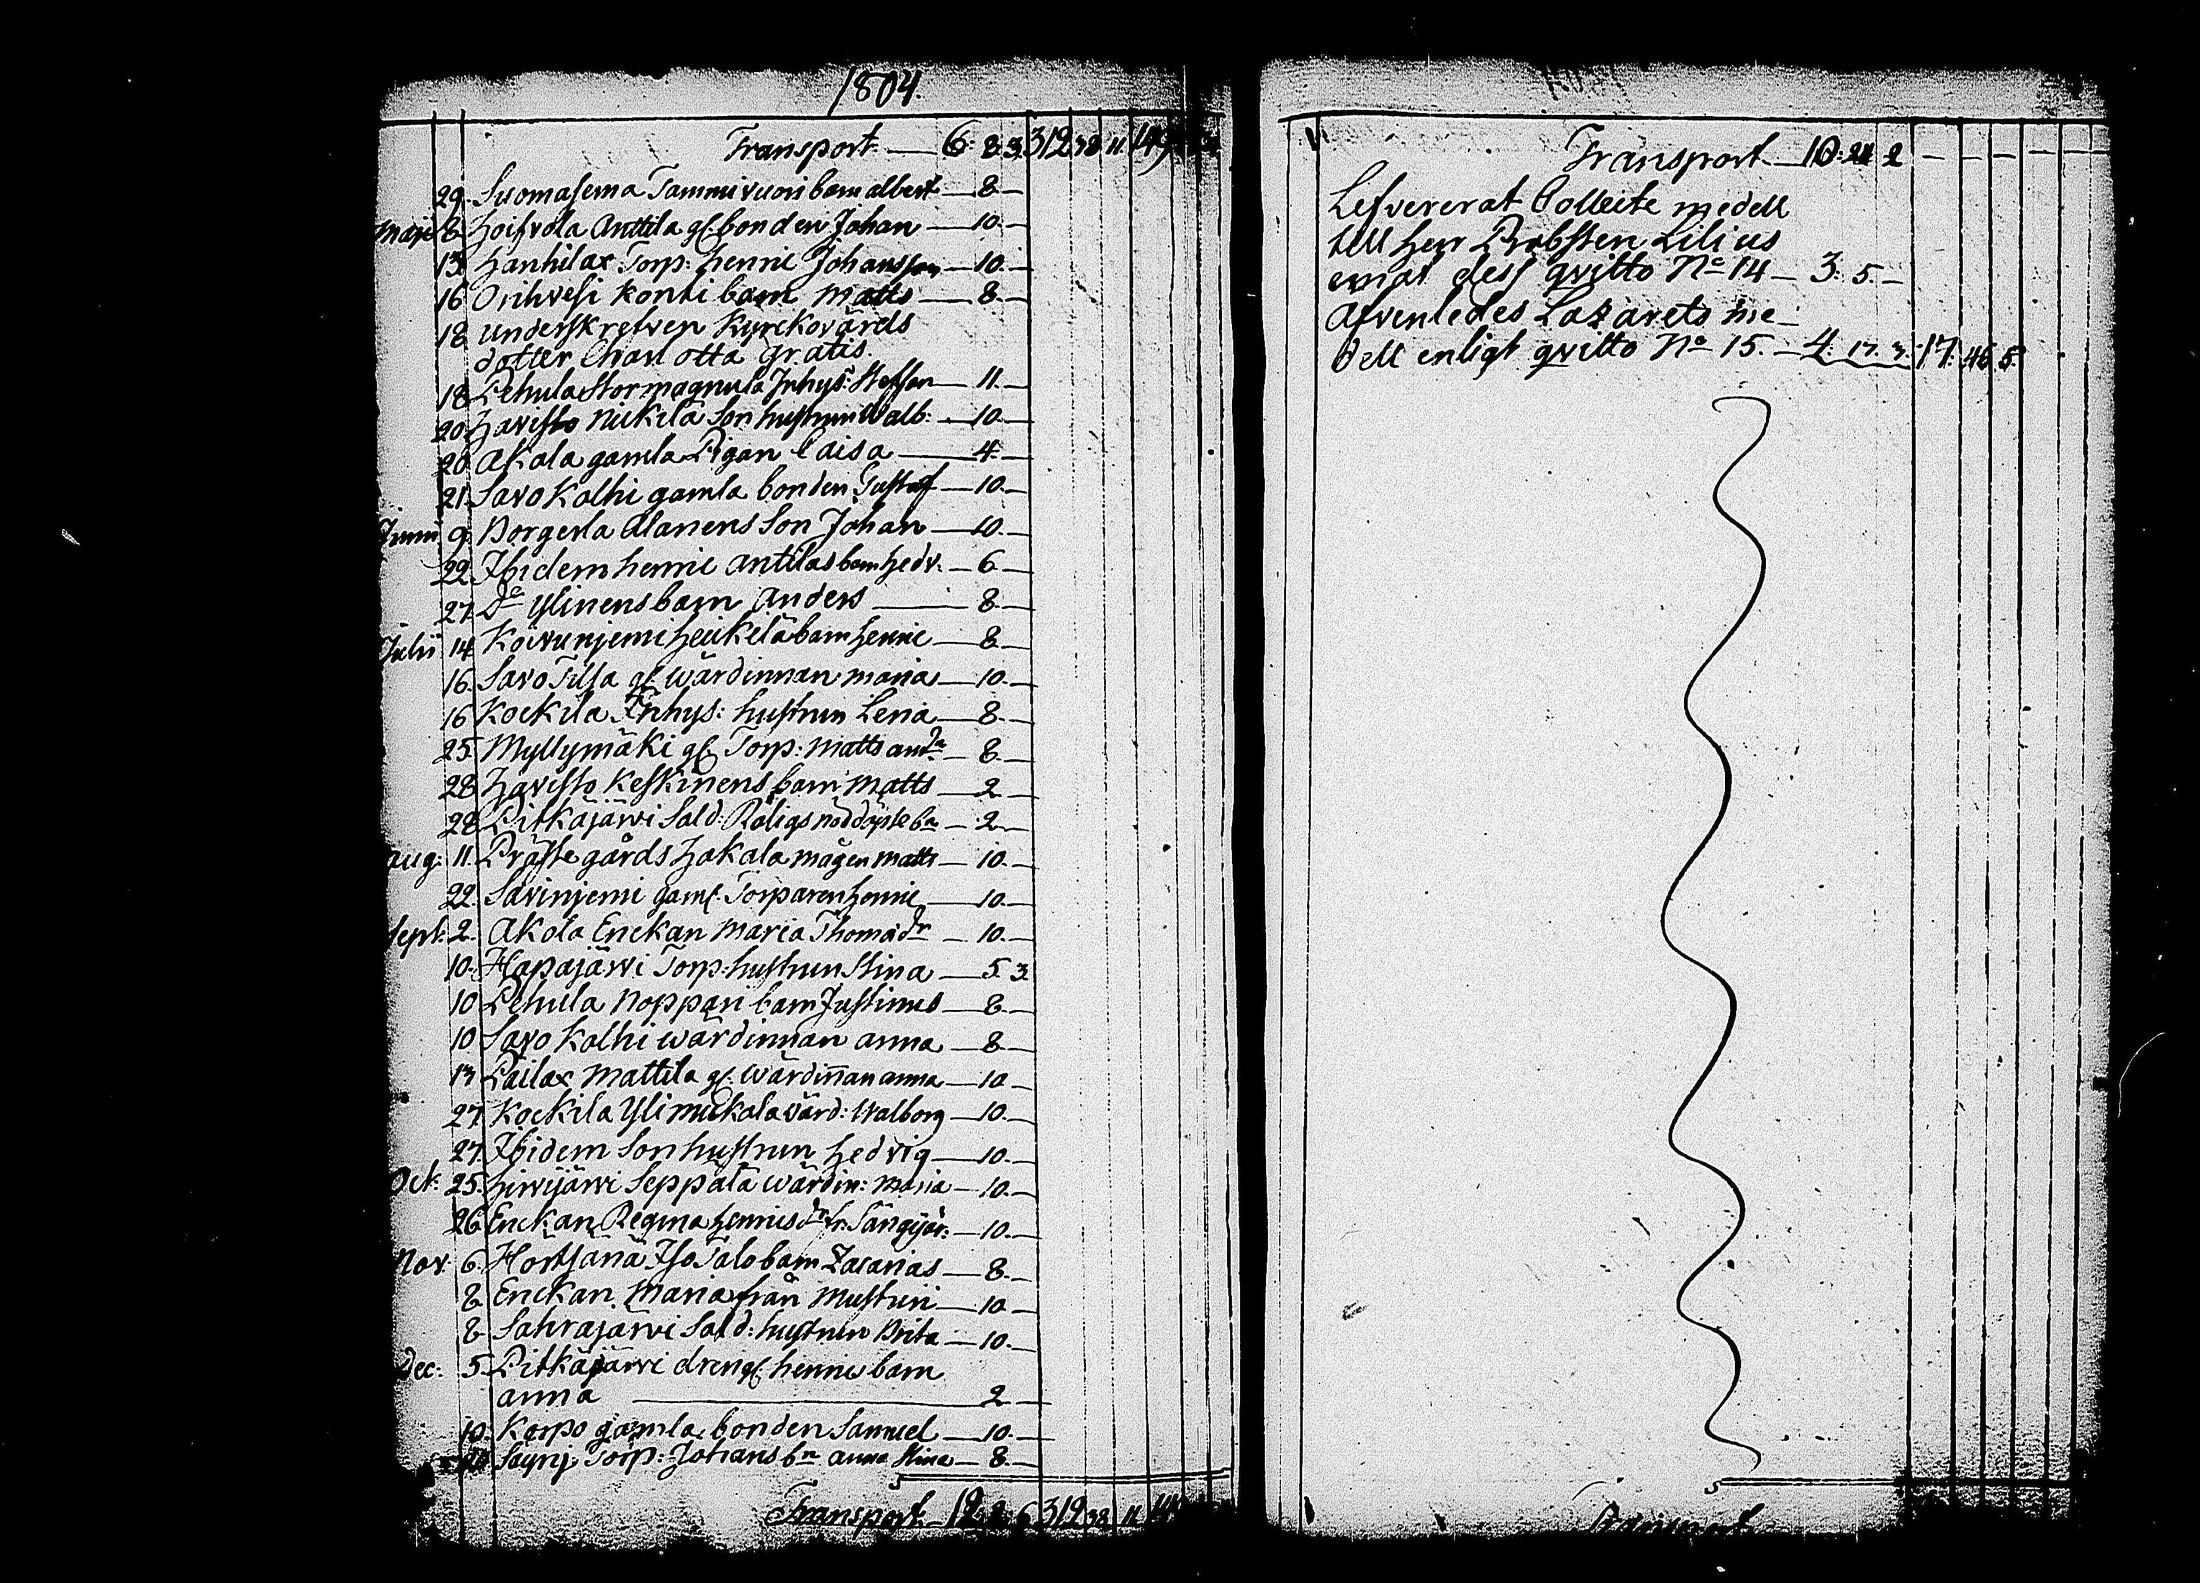 1804.
Transport — 6. 8. 3. 312 38 11
29. Suomasema Tammivuori barn albert — 8. —
Maji 8. Hoisvola Anttila gl. bonden Johan — 10. —
13. Hanhilax Torp: Henric Johansson — 10. —
16 Orihvesi Konki barn Matts — 8. —
18 underskrefven Kyrckovärds
dotter Charlotta gratis.
18 Pehula Stormagnula Inhys: Steffan — 11. —
20. Havisto Nickila Son hustrun Walb: — 10. —
20 Akola gamla Pigan Caisa — 4. —
21. Savo Kolhi gamla bonden Gustaf — 10. —
Junii 9. Borgerla Alanens Son Johan — 10. —
22. Ibidem henric Antilas barn hedv. — 6 —
27. Do Ylinens barn Anders — 8. —
Julii 14. Koivunjemi Heickelä barn Henric — 8. —
16. Savo Tilsa gl. wärdinnan maria — 10. —
16 Kockila Inhys: hustrun Lena — 8. —
25. Myllymäki gl. Torp: Matts — 8. —
28 Havisto Keskinens barn Matts — 2. —
28 Pitkäjärvi Sald: Röligs nöddöpte bn — 2. —
aug: 11. Prästegårds Hakala mågen matts — 10. —
22. Savinjemi gaml. Torparen Henric — 10. —
Sept: 2. Akola Enckan Maria Thomadr — 10. —
10. Hapajärvi Torp: hustrun Stina — 5. 3.
10 Pehula Noppari barn Justinus — 8. —
10 Savo Kolhi wärdinnan anna — 8. —
13 Pailax Mattila gl. wärdinnan anna — 10 —
27. Kockila Yli muckala värd: Walborg — 10. —
27. Ibidem Son hustrun Hedvig — 10. —
Oct: 25. Hirvijärvi Seppälä wärdin: maria — 10. —
26 Enckan Regina Henricsdr fr. — 10. —
Nov. 6. Hortsana Iso Talo barn Zacarias — 8. —
8 Enckan Maria från Musturi — 10 —
8 Sahrajärvi Sald: hustrun Brita — 10. —
Dec: 5. Pitkäjärvi drengl. henrics barn
anna — 2. —
10. Korpo gamla bonden Samuel — 10. —
Torp: Johans bn anna Stina — 8. —
Transport — 12. 2. 6 312 38 11
Transport — 10: 2 — — — —
Lefvererat Collecte medell
till Herr Probsten Lilius
emot dess qvitto No 14 — 3. 5. —
Afvenledes Lazarets me-
dell enligt qvitto No 15. — 4. 17. 3. 17. 46 5.
Transport